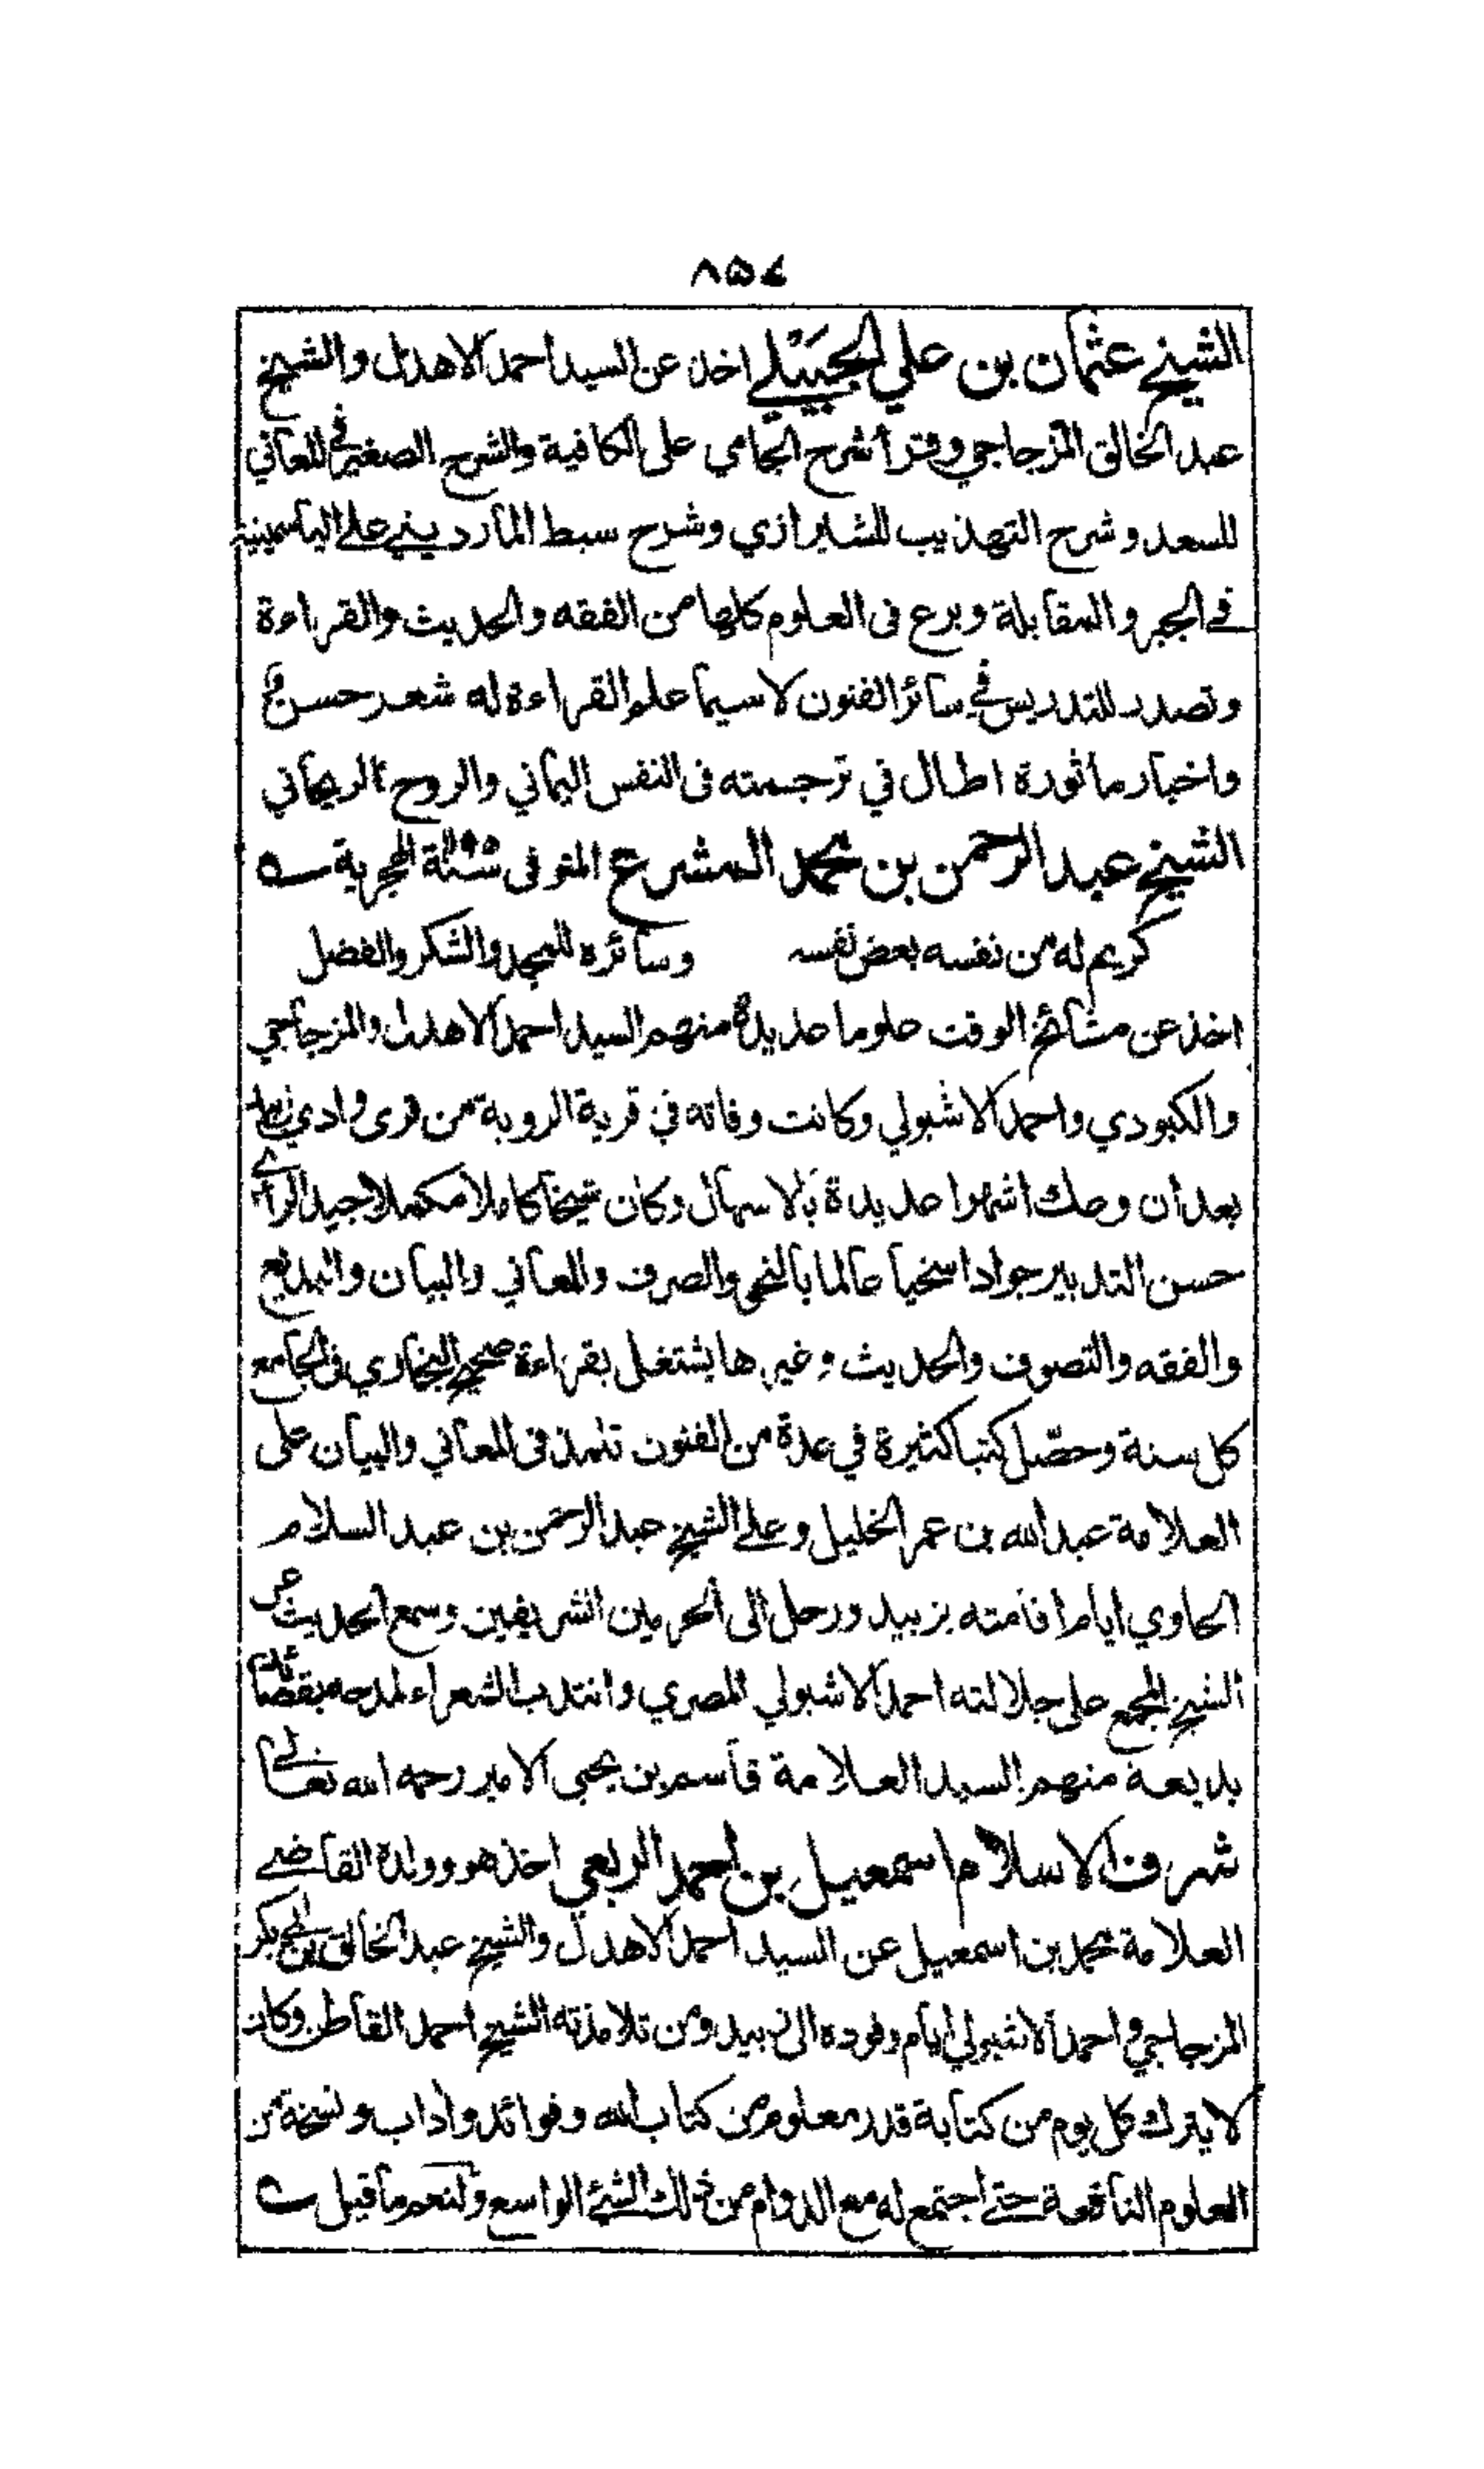 ٨٥٤
الشيخ عثمان بن علي الجبيلي اخذ عن السيد احمد الاهدل والشيخ
عبد الخالق المزجاجي وقرأ شرح الجامي على الكافية والشرح الصغير في المعاني
للسعد وشرح التهذيب للشيرازي وشرح سبط المارديني على الياسمينية
في الجبر والمقابلة وبرع فى العلوم كلها من الفقه والحديث والقراءة
وتصدر للتدريس في سائر الفنون لاسيما علم القراءة له شعر حسن
واخبار ماثورة اطال في ترجمته فى النفس اليماني والروح الريحاني
الشيخ عبد الرحمن بن محمد المشرع المتوفى سنة الهجرية
كريم له من نفسه بعض نفسه وسائره للمجد والشكر والفضل
اخذ عن مشائخ الوقت علوما عديدة منهم السيد احمد الاهدل والمزجاجي
والكبودي واحمد الاشبولي وكانت وفاته في قرية الروية من قرى وادي
بعد أن وعك اشهرا عديدة بالاسهال وكان شيخا كاملا مكملا جيد الراے
حسن التدبير جوادا سخيا عالما بالنحو والصرف والمعاني والبيان والبديع
والفقه والتصوف والحديث وغيرها يشتغل بقراءة صحيح البخاري فى الجامع
كل سنة وحصّل كتبا كثيرة في عدة من الفنون تلمذ فى المعاني والبيان على
العلامة عبد الله بن عمر الخليل وعلى الشيخ عبد الرحمن بن عبد السلام
الحاوي ايام اقامته بزبيد ورحل الى الحرمين الشريفين وسمع الحديث عن
الشيخ المجمع على جلالته احمد الاشبولي المصري وانتدب الشعراء لمدحه بقصائد
بديعة منهم السيد العلامة قاسم بن يحيى الامير رحمه الله تعالى
شرف الاسلام اسمعيل بن احمد الربعي اخذ هو وولده القاضي
العلامة محمد بن اسمعيل عن السيد احمد الاهدل والشيخ عبد الخالق بن ابي بكر
المزجاجي واحمد الاشبولي ايام وفوده الى زبيد ومن تلامذته الشيخ احمد القاطن وكان
لا يترك كل يوم من كتابة قدر معلوم من كتاب الله وفوائد واداب ونسخة من
العلوم النافعة حتى اجتمع له مع الدوام من ذلك الشئ الواسع ولنعم ما قيل